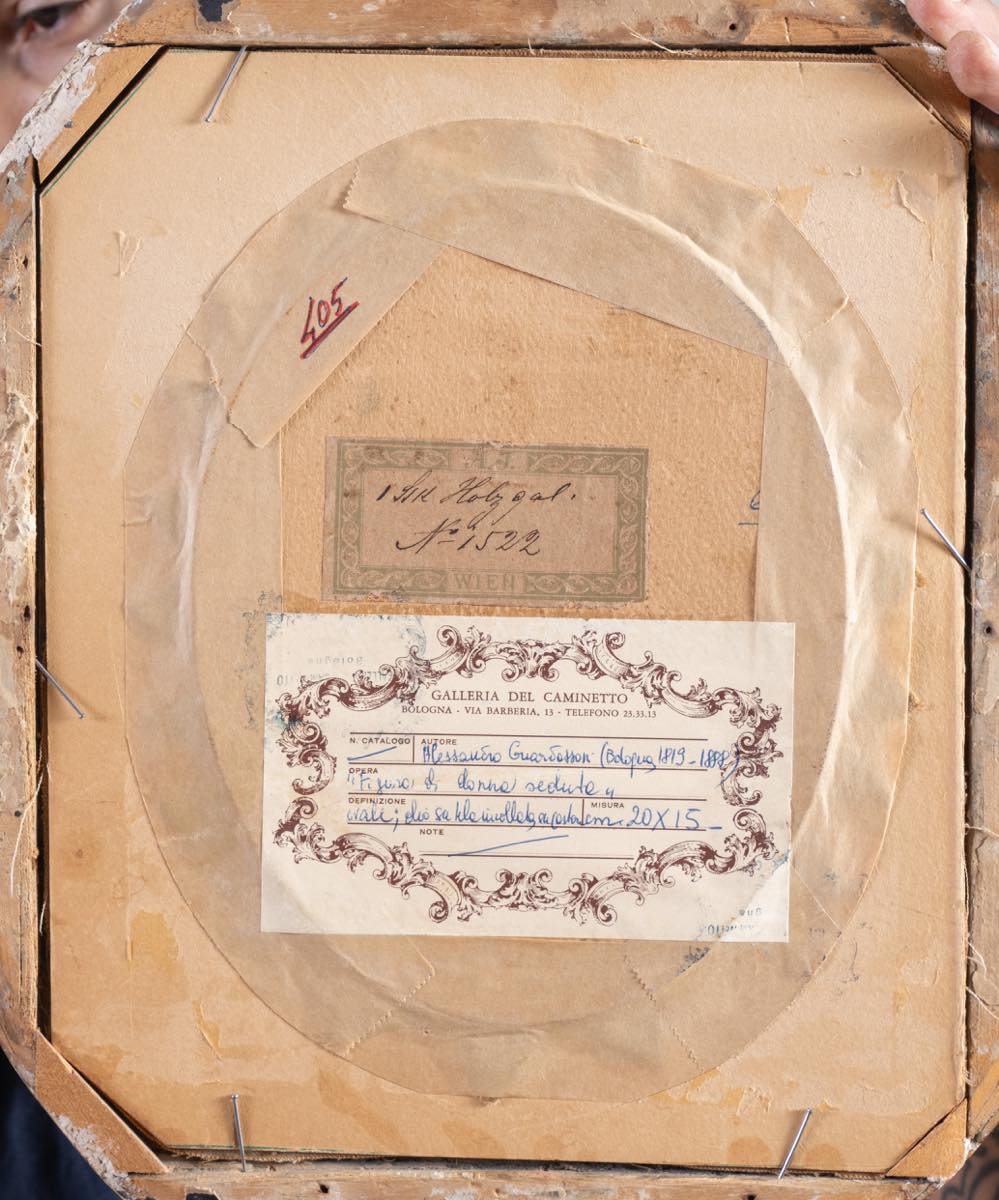 405
1 Stk Holzgal.
No 1522
WIEN
GALLERIA DEL CAMINETTO
BOLOGNA - VIA BARBERIA, 13 - TELEFONO 23.33.13
N. CATALOGO
AUTORE
Alessandro Guardassoni (Bologna, 1819-1888)
OPERA
"Figura di donna seduta"
DEFINIZIONE
ovale; olio su tela incollata su
MISURA
cm. 20X15-
NOTE
Bologna